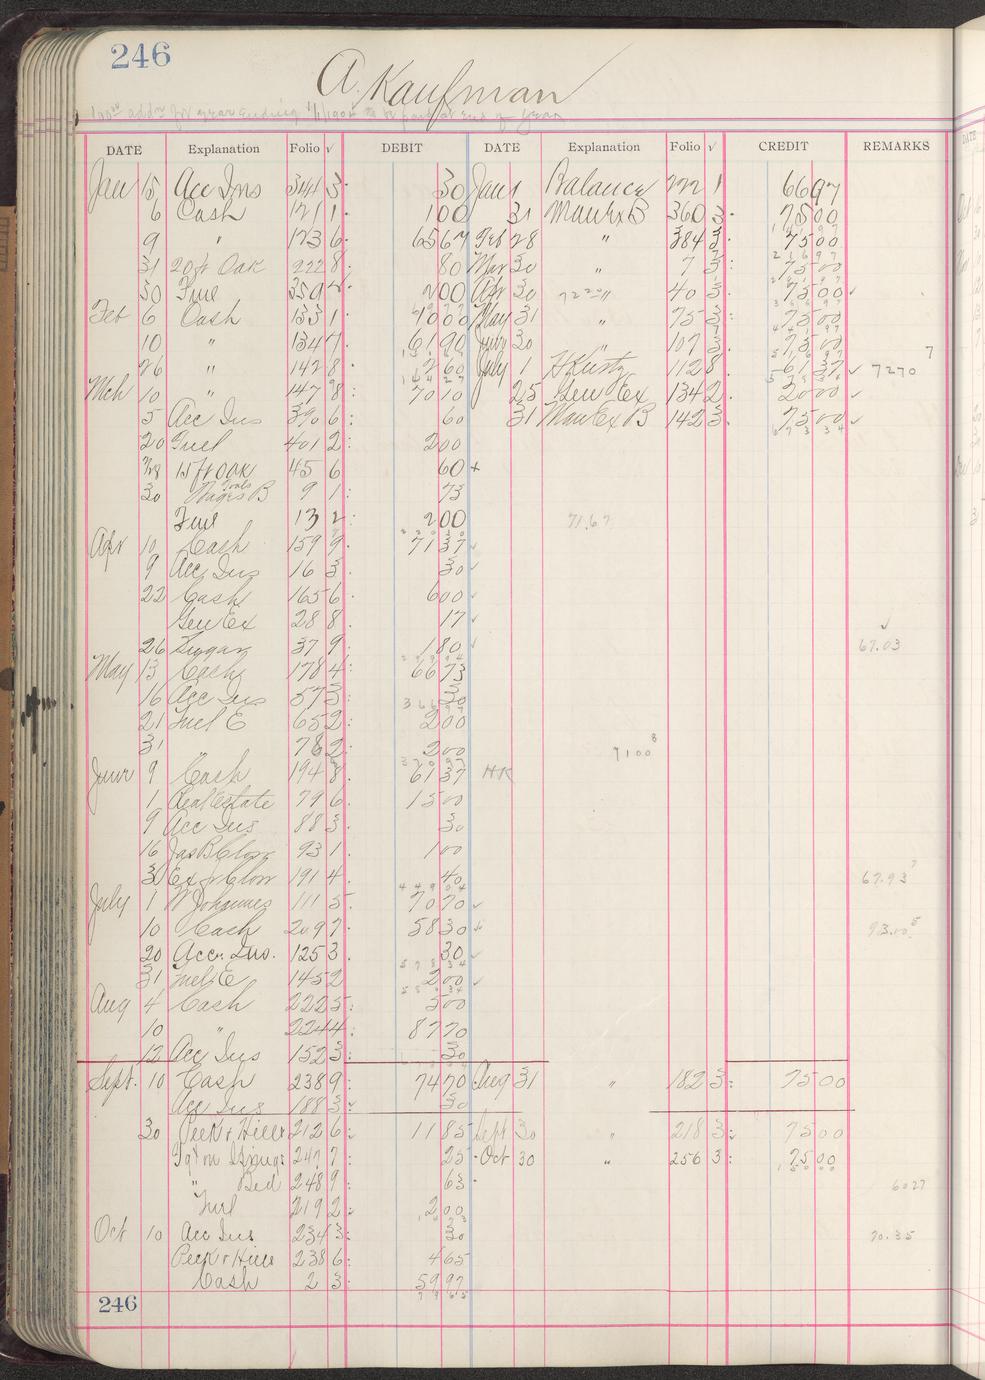 246
A. Kaufman
DATE Explanation Folio √ DEBIT DATE Explanation Folio √ CREDIT REMARKS
Jan 15 Acc Ins 344 3 30 Jan 1 Balance 222 1 6697
6 Cash 121 1 100 31 ManExB 360 3 7500
9 " 123 6 6567 Feb 28 " 384 3 7500
31 20 ft Oak 222 8 80 Mar 30 " 7 3 7500
30 Fuel 350 2 200 Apr 30 " 40 3 7500
Feb 6 Cash 133 1 1000 May 31 " 75 3 7500
10 " 134 7 6190 June 30 " 107 3 7500
26 " 142 8 260 July 1 H Kurtz 112 8 6137 7270
Mch 10 " 147 8 7010 25 Gen Ex 134 2 2000
5 Acc Ins 390 6 60 31 ManExB 142 3 7500
20 Fuel 401 2 200
15 ft Oak 45 6 60
30 Wages B 9 1 73
Fuel 13 2 200 71.67
Apr 10 Cash 159 9 7137
9 Acc Ins 16 3 30
22 Cash 165 6 600
Gen Ex 28 8 17
26 Sugar 37 9 180 67.03
May 13 Cash 178 4 6673
16 Acc Ins 57 3 30
21 Fuel E 65 2 200
31 " 78 2 200 7100
June 9 Cash 194 8 6137 HK
1 Real Estate 79 6 1500
9 Acc Ins 88 3 30
16 Jas B Clow 93 1 100
191 4 40 67.93
July 1 W Johannes 111 5 7070
10 Cash 209 7 5830 93.00
20 Acc. Ins. 125 3 30
31 Fuel E 145 2 200
Aug 4 Cash 222 5 500
10 " 224 4 8770
12 Acc Ins 152 3 30
Sept. 10 Cash 238 9 7470 Aug 31 " 182 3 7500
Acc Ins 188 3 30
30 Peek & Hills 212 6 1185 Sept 30 " 218 3 7500
247 7 25 Oct 30 " 256 3 7500
" Bed 248 9 63 6027
Fuel 219 2 200
Oct 10 Acc Ins 234 3 30 70.35
Peek & Hills 238 6 465
Cash 2 3 5997
246